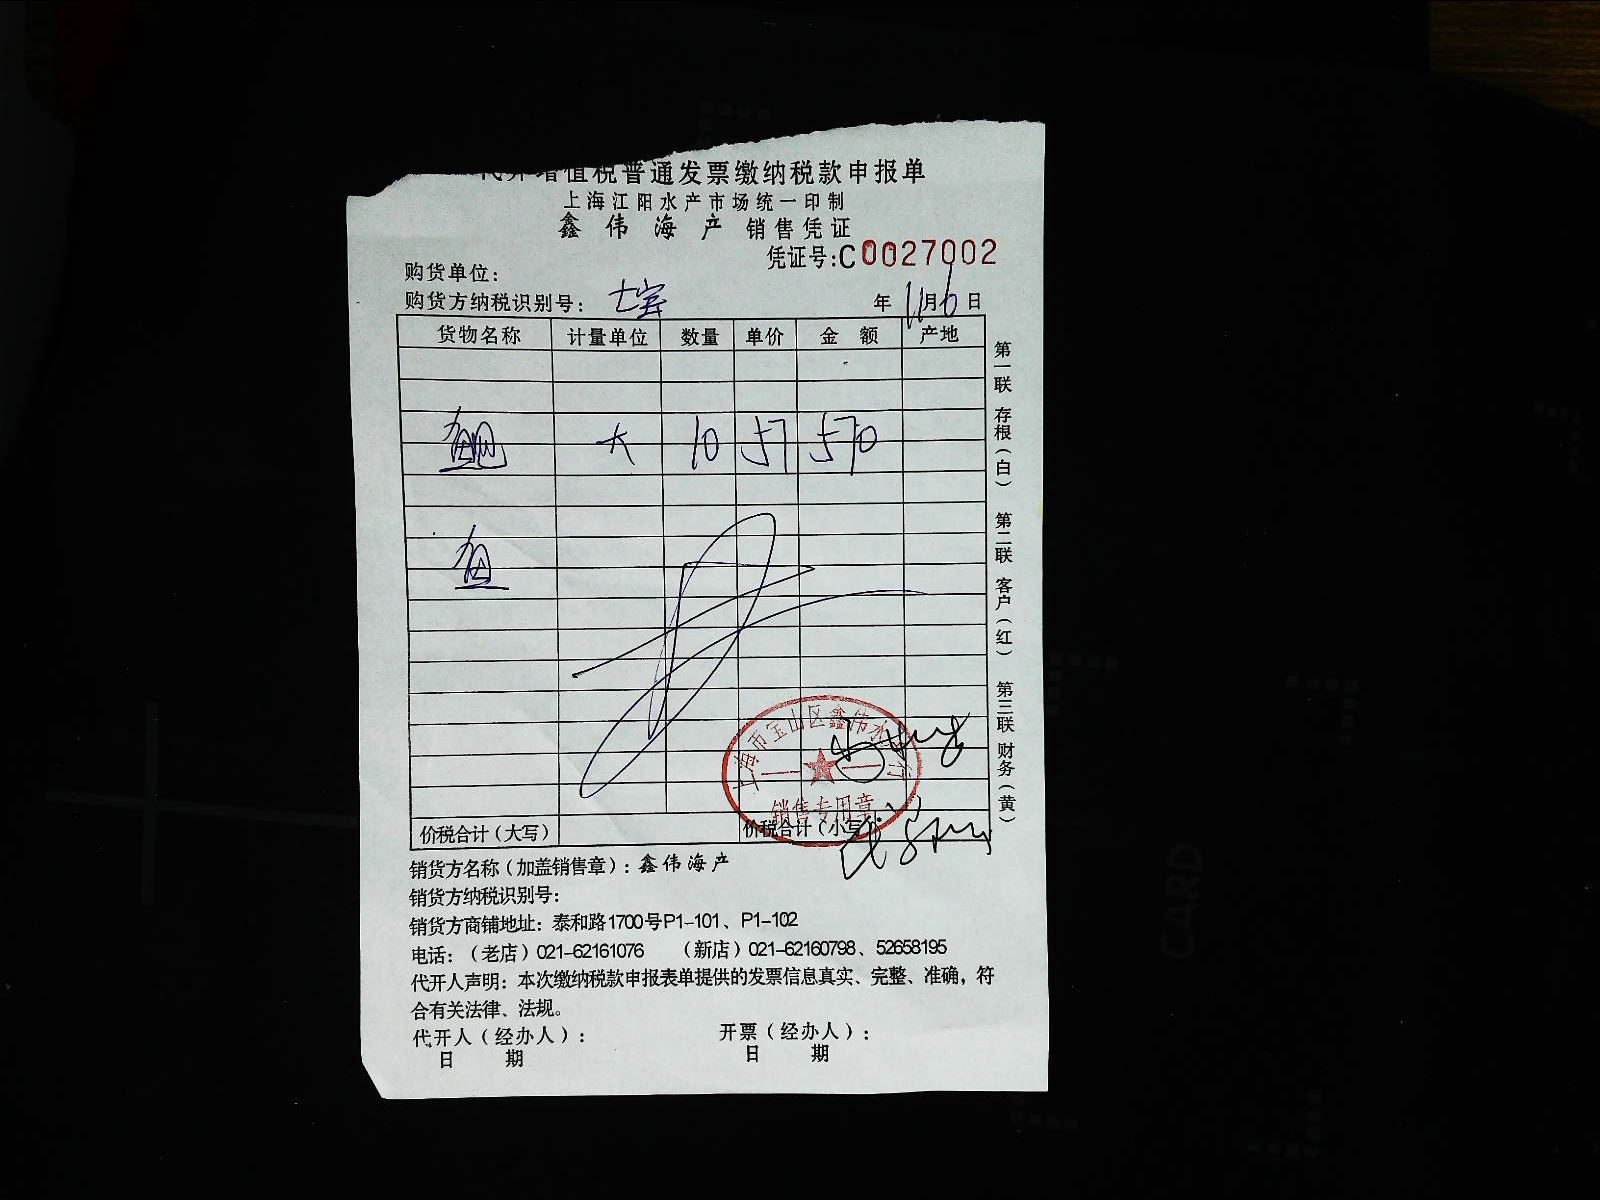 代开增值税普通发票缴纳税款申报单
上海江阳水产市场统一印制
鑫伟海产 销售凭证
凭证号:C0027002
购货单位:
购货方纳税识别号: 七宝 年 11月6日
货物名称 计量单位 数量 单价 金额 产地
大 10 57 570
鱼
上海市宝山区鑫伟水产行
销售专用章
价税合计(大写) 价税合计(小写)
销货方名称(加盖销售章):鑫伟海产
销货方纳税识别号:
销货方商铺地址:泰和路1700号P1-101、P1-102
电话:(老店)021-62161076 (新店)021-62160798、52658195
代开人声明:本次缴纳税款申报表单提供的发票信息真实、完整、准确,符
合有关法律、法规。
代开人(经办人): 开票(经办人):
日 期 日 期
第一联 存根(白) 第二联 客户(红) 第三联 财务(黄)